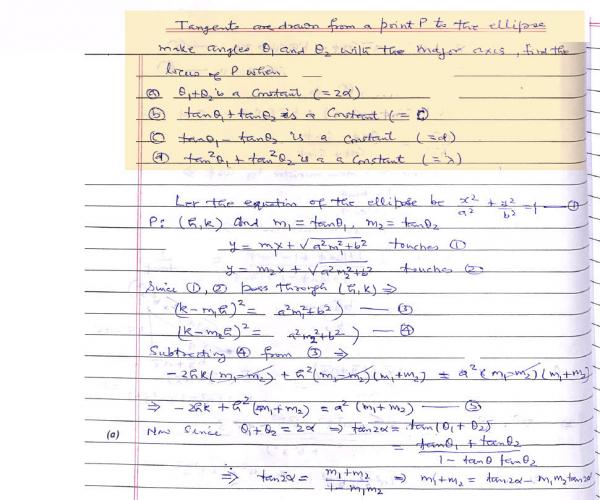 Tangents are drawn from a point P to the ellipse
make angles θ₁ and θ₂ with the major axis, find the
locus of P when
(a) θ₁+θ₂ is a constant (=2α)
(b) tanθ₁+tanθ₂ is a constant (= C)
(c) tanθ₁-tanθ₂ is a constant (=d)
(d) tan²θ₁+tan²θ₂ is a a constant (=λ)
Let the equation of the ellipse be x²/a² + y²/b² =1 — ①
P: (h,k) and m₁ = tanθ₁, m₂ = tanθ₂
y = m₁x+√a²m₁²+b² touches ①
y = m₂x+√a²m₂²+b² touches ②
Since ①,② pass through (h,k) ⇒
(k-m₁h)² = a²m₁²+b²) — ③
(k-m₂h)² = a²m₂²+b²) — ④
Subtracting ④ from ③ ⇒
-2hk(m₁-m₂) + h²(m₁-m₂)(m₁+m₂) = a²(m₁-m₂)(m₁+m₂)
⇒ -2hk + h²(m₁+m₂) = a²(m₁+m₂) — ⑤
(a) Now since θ₁+θ₂ = 2α ⇒ tan2α = tan(θ₁+θ₂)
= tanθ₁+tanθ₂ / 1-tanθ tanθ₂
∴ ⇒ tan2α = m₁+m₂ / 1-m₁m₂ ⇒ m₁+m₂ = tan2α-m₁m₂tan2α